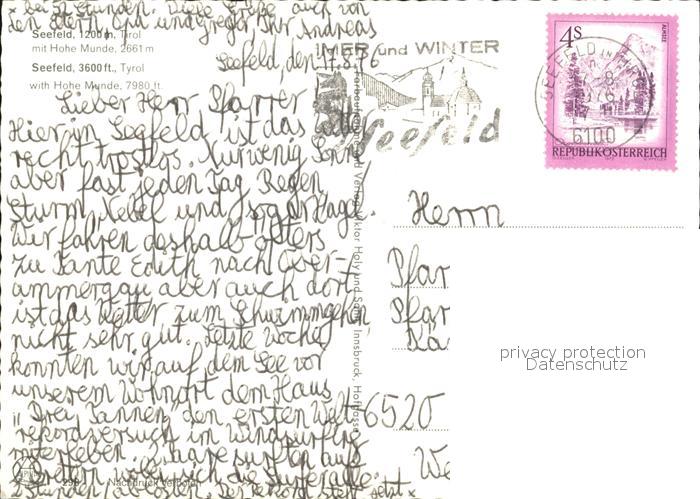 x bei 51 Stunden. Liebe Grüße auch von
den Eltern und Gregor Ihr Andreas
Seefeld, 1200 m, Tirol
mit Hohe Munde, 2661 m
Seefeld, 3600 ft., Tyrol
with Hohe Munde, 7980 ft.
Seefeld, den 17.8.76
Lieber Herr Pfarrer
Hier in Seefeld ist das Wetter
recht trostlos. Nur wenig Sonne
aber fast jeden Tag Regen
Sturm Nebel und sogar Hagel.
Wir fahren deshalb öfters
zu Tante Edith nach Ober-
ammergau aber auch dort
ist das Wetter zum Schwimmgehen
nicht sehr gut. Letzte Woche
konnten wir auf dem See vor
unserem Wohnort dem Haus
"Drei Tannen den ersten Welt-
rekordversuch im Windsurfing
miterleben. 2 surften auf
Brettern
Stunden ab Osten. Der Rekord steht jetzt x
298 Nachdruck verboten
Verlag Viktor Holy und Sohn, Innsbruck, Hofgasse
MER und WINTER
Seefeld
SEEFELD IN TIROL
6100
4S
ALMSEE
REPUBLIK ÖSTERREICH
Herrn
Pfar
Pfar
6520
We
privacy protection
Datenschutz